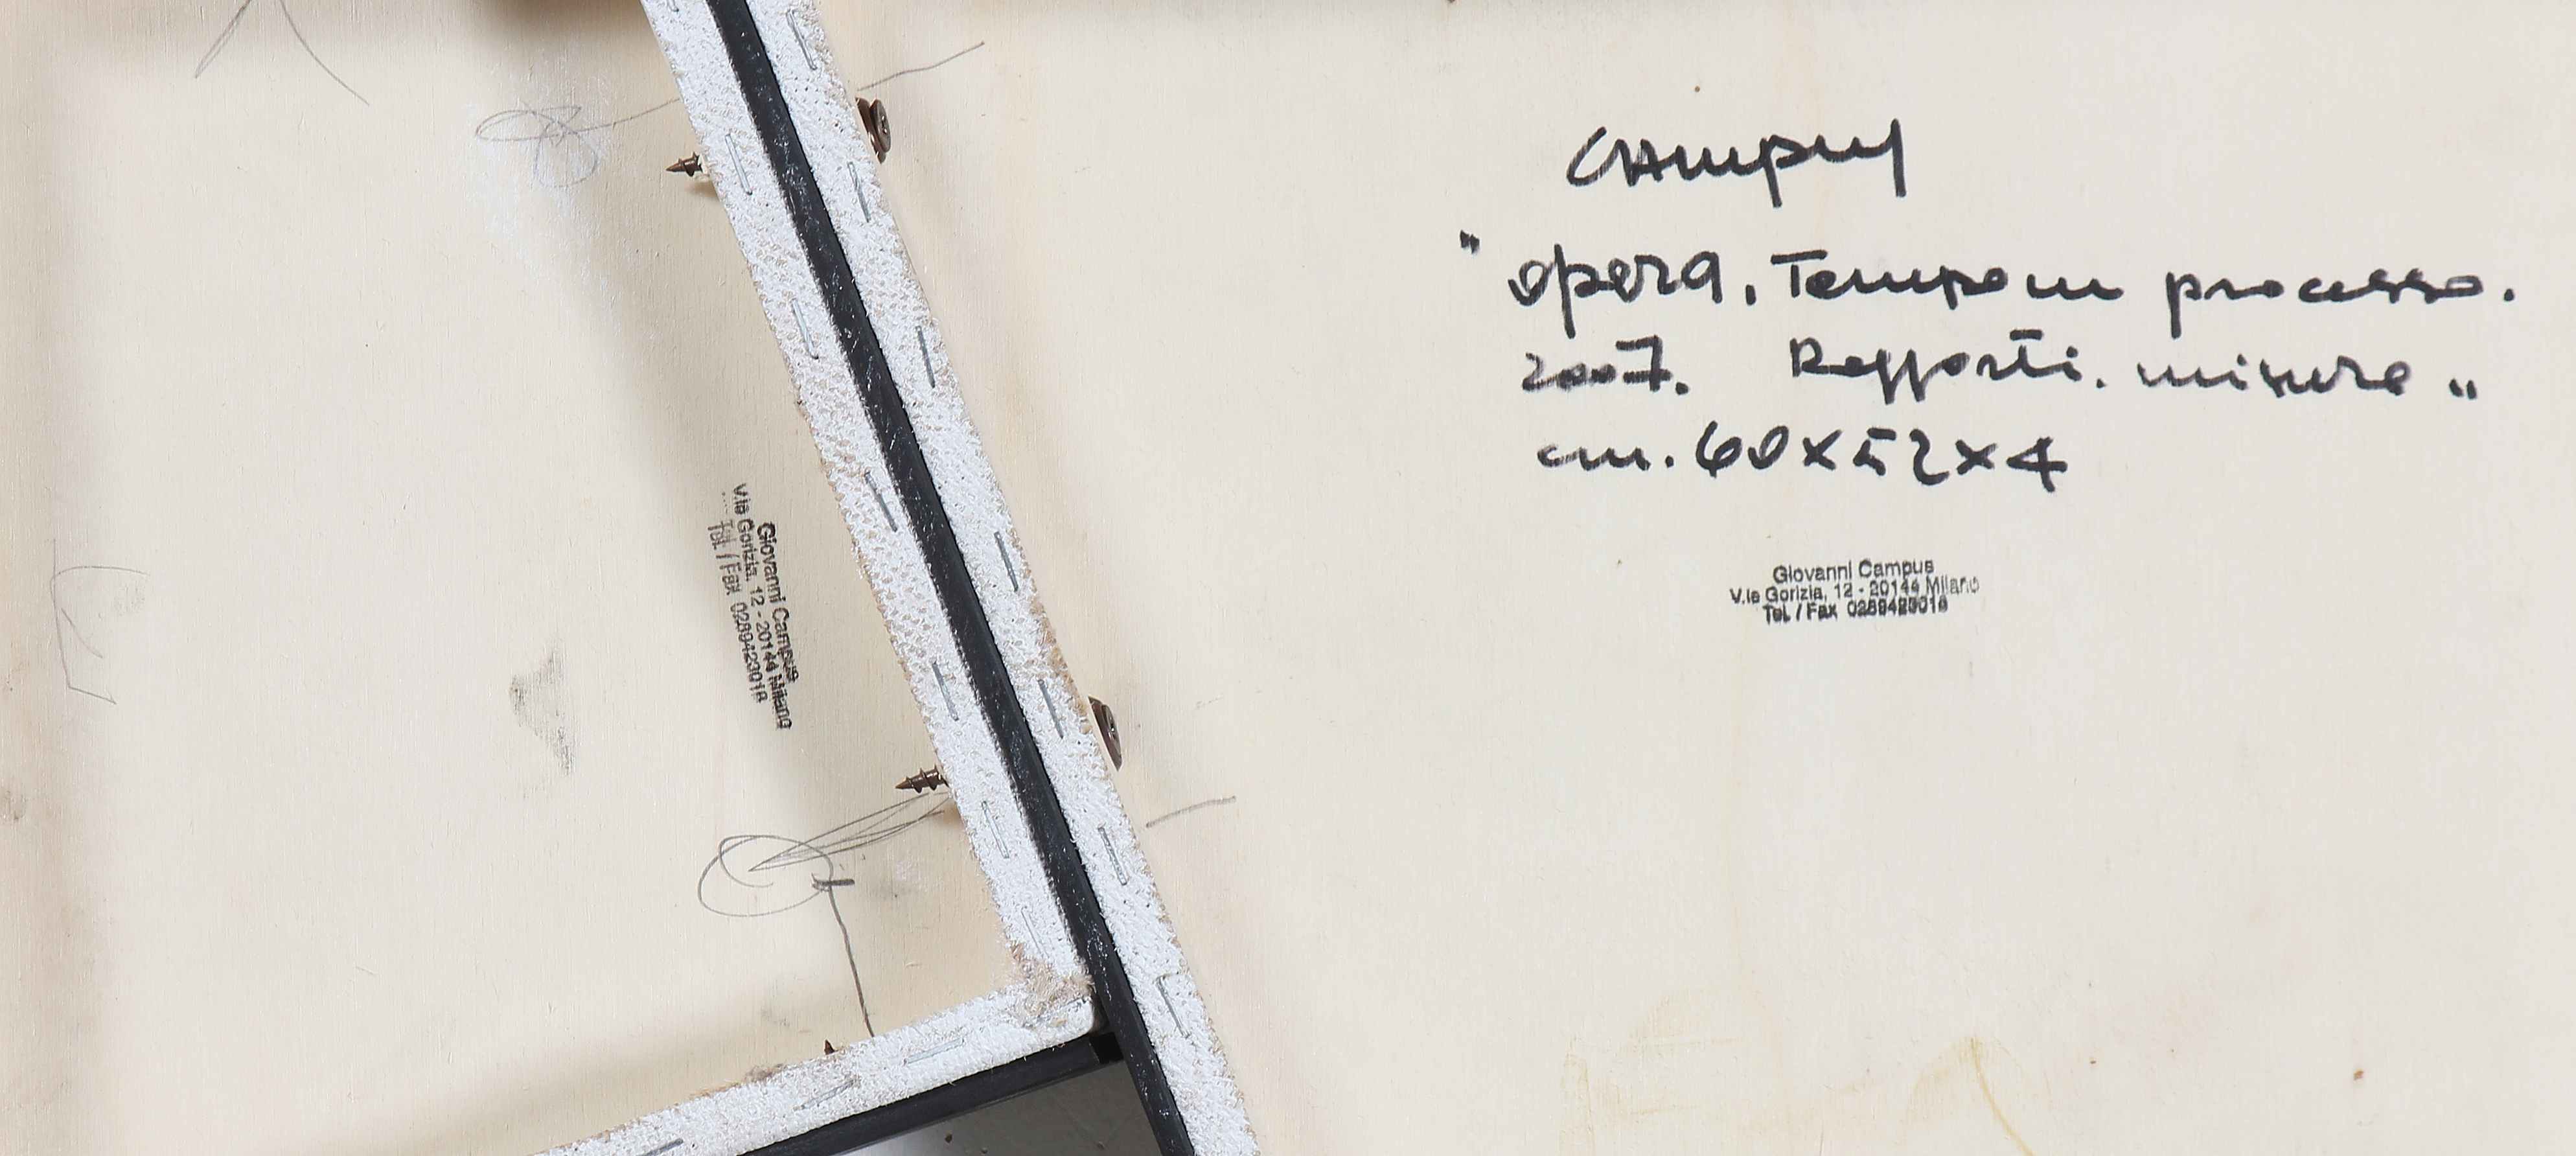 Campus
"opera. Tempo in processo.
2007. Rapporti. misure"
cm. 60x52x4
Giovanni Campus
V.le Gorizia, 12 - 20144 Milano
Tel. / Fax 0289423018
Giovanni Campus
V.le Gorizia, 12 - 20144 Milano
Tel. / Fax 0289423018